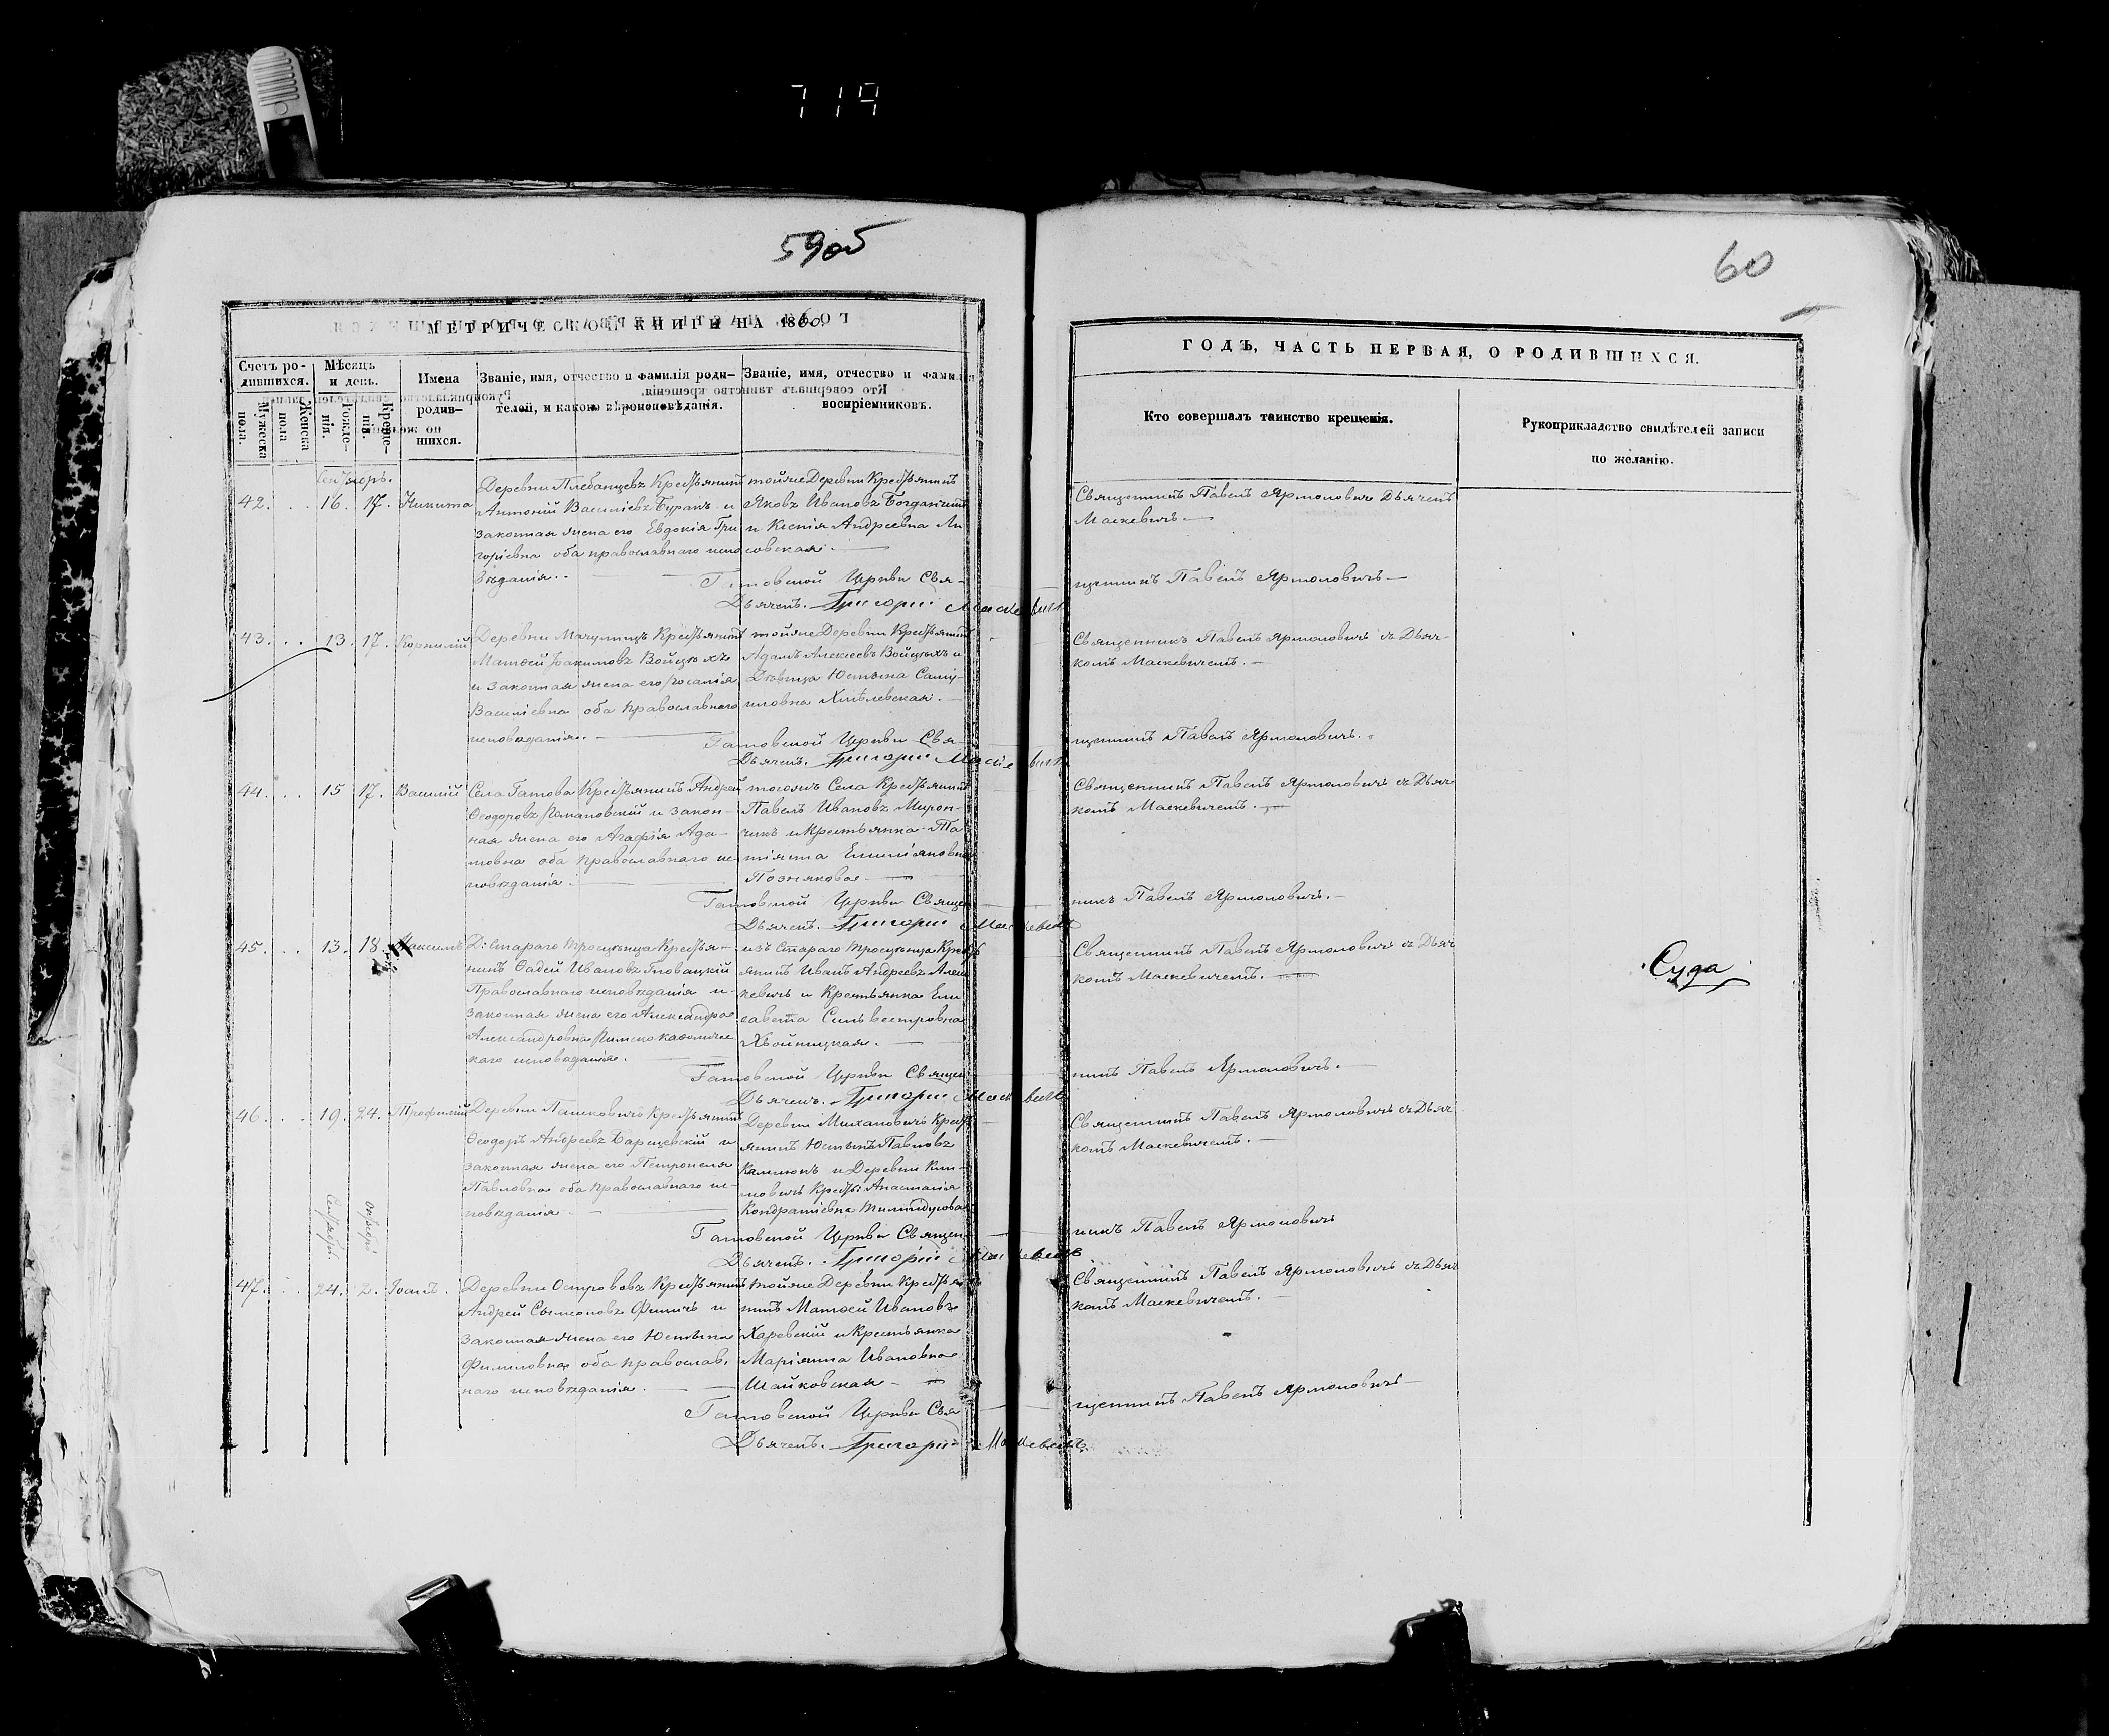 719
59об
60
МЕТРИЧЕСКОЙ КНИГИ НА 1860
ГОДЪ, ЧАСТЬ ПЕРВАЯ, О РОДИВШИХСЯ.
Счетъ ро-
дившихся.
Мужеска
пола.
Женска
пола
Мѣсяцъ
и день.
Рожде-
нія.
Креще-
нія.
Имена
родив-
шихся.
Званіе, имя, отчество и фамилія роди-
телей, и какого вѣроисповѣданія.
Званіе, имя, отчество и фамилія
воспріемниковъ.
Кто совершалъ таинство крещенія.
Рукоприкладство свидѣтелей записи
по желанію.
Сентябрь.
42. 16. 17. Никита
Деревни Плебанцевъ Крестьянинъ
Антоній Васильевъ Буракъ и
законная жена его Евдокія Гри
горіевна оба православнаго испо
вѣданія.
тойже Деревни Крестьянинъ
Яковъ Ивановъ Богданчикъ
и Ксенія Андреевна Ли
совская.
Священникъ Павелъ Ярмоловичъ Дьячекъ
Маскевичъ.
Гатовской Церкви Свя-
щенникъ Павелъ Ярмоловичъ
Дьячекъ. Григорій Маскевичъ
43. 13. 17. Корнилій
Деревни Мачулищъ Крестьянинъ
Матѳей Іоакимовъ Войцѣхъ
и законная жена его Розалія
Васильевна оба Православнаго
исповѣданія.
тойже Деревни Крестьянинъ
Адамъ Алексѣевъ Войцѣхъ и
Дѣвица Юстина
Хмѣлевская.
Священникъ Павелъ Ярмоловичъ съ Дьяч-
комъ Маскевичемъ.
Гатовской Церкви Свя
щенникъ Павелъ Ярмоловичъ.
Дьячекъ. Григорій Маскевичъ
44. 15 17. Василій
Села Гатова Крестьянинъ Андрей
Ѳеодоровъ Романовскій и закон-
ная жена его Агафія Ада-
мовна оба Православнаго ис-
повѣданія.
тогожъ Села Крестьянинъ
Павелъ Ивановъ Мирон-
чикъ и Крестьянка Та
тіянна Емиліяновна
Познякова
Священникъ Павелъ Ярмоловичъ съ Дьяч
комъ Маскевичемъ.
Гатовской Церкви Священ
никъ Павелъ Ярмоловичъ.
Дьячекъ. Григорій Маскевичъ
45. 13. 18. Максимъ
Д: Стараго Тросценца Крестья-
нинъ Фадей Ивановъ Гловацкій
Православнаго исповѣданія и
законная жена его Александра
Александровна Римско католичес
каго исповѣданія.
изъ Стараго Тросценца Крест
янинъ Иванъ Андреевъ
и Крестьянка Ели
савета Сильвестровна
Хвойницкая.
Священникъ Павелъ Ярмоловичъ съ Дьяч
комъ Маскевичемъ.
Суда
Гатовской Церкви Священ
никъ Павелъ Ярмоловичъ.
Дьячекъ. Григорій Маскевичъ
46. 19. 24. Трофимій
Деревни Пашковичъ Крестьянинъ
Ѳеодоръ Андреевъ Барщевскій и
законная жена его Петронеля
Павловна оба православнаго ис-
повѣданія
Деревни Михановичъ Крест
янинъ Юстинъ Павловъ
Камлюкъ и Деревни Кли-
мовичъ Крест: Анастасія
Кондратіевна
Священникъ Павелъ Ярмоловичъ съ Дьяч
комъ Маскевичемъ.
Гатовской Церкви Священ
никъ Павелъ Ярмоловичъ
Дьячекъ. Григорій Маскевичъ
Сентябрь
октябрь
47. 24. 2. Іоанъ.
Деревни Острововъ Крестьянинъ
Андрей Сѵмеоновъ и
законная жена его Юстина
Филиповна оба православ.
наго исповѣданія.
тойже Деревни Крестья
нинъ Матѳей Ивановъ
Харевскій и Крестьянка
Маріянна Ивановна
Шайковская
Священникъ Павелъ Ярмоловичъ съ Дьяч
комъ Маскевичемъ.
Гатовской Церкви Свя
щенникъ Павелъ Ярмоловичъ
Дьячекъ. Григорій Маскевичъ